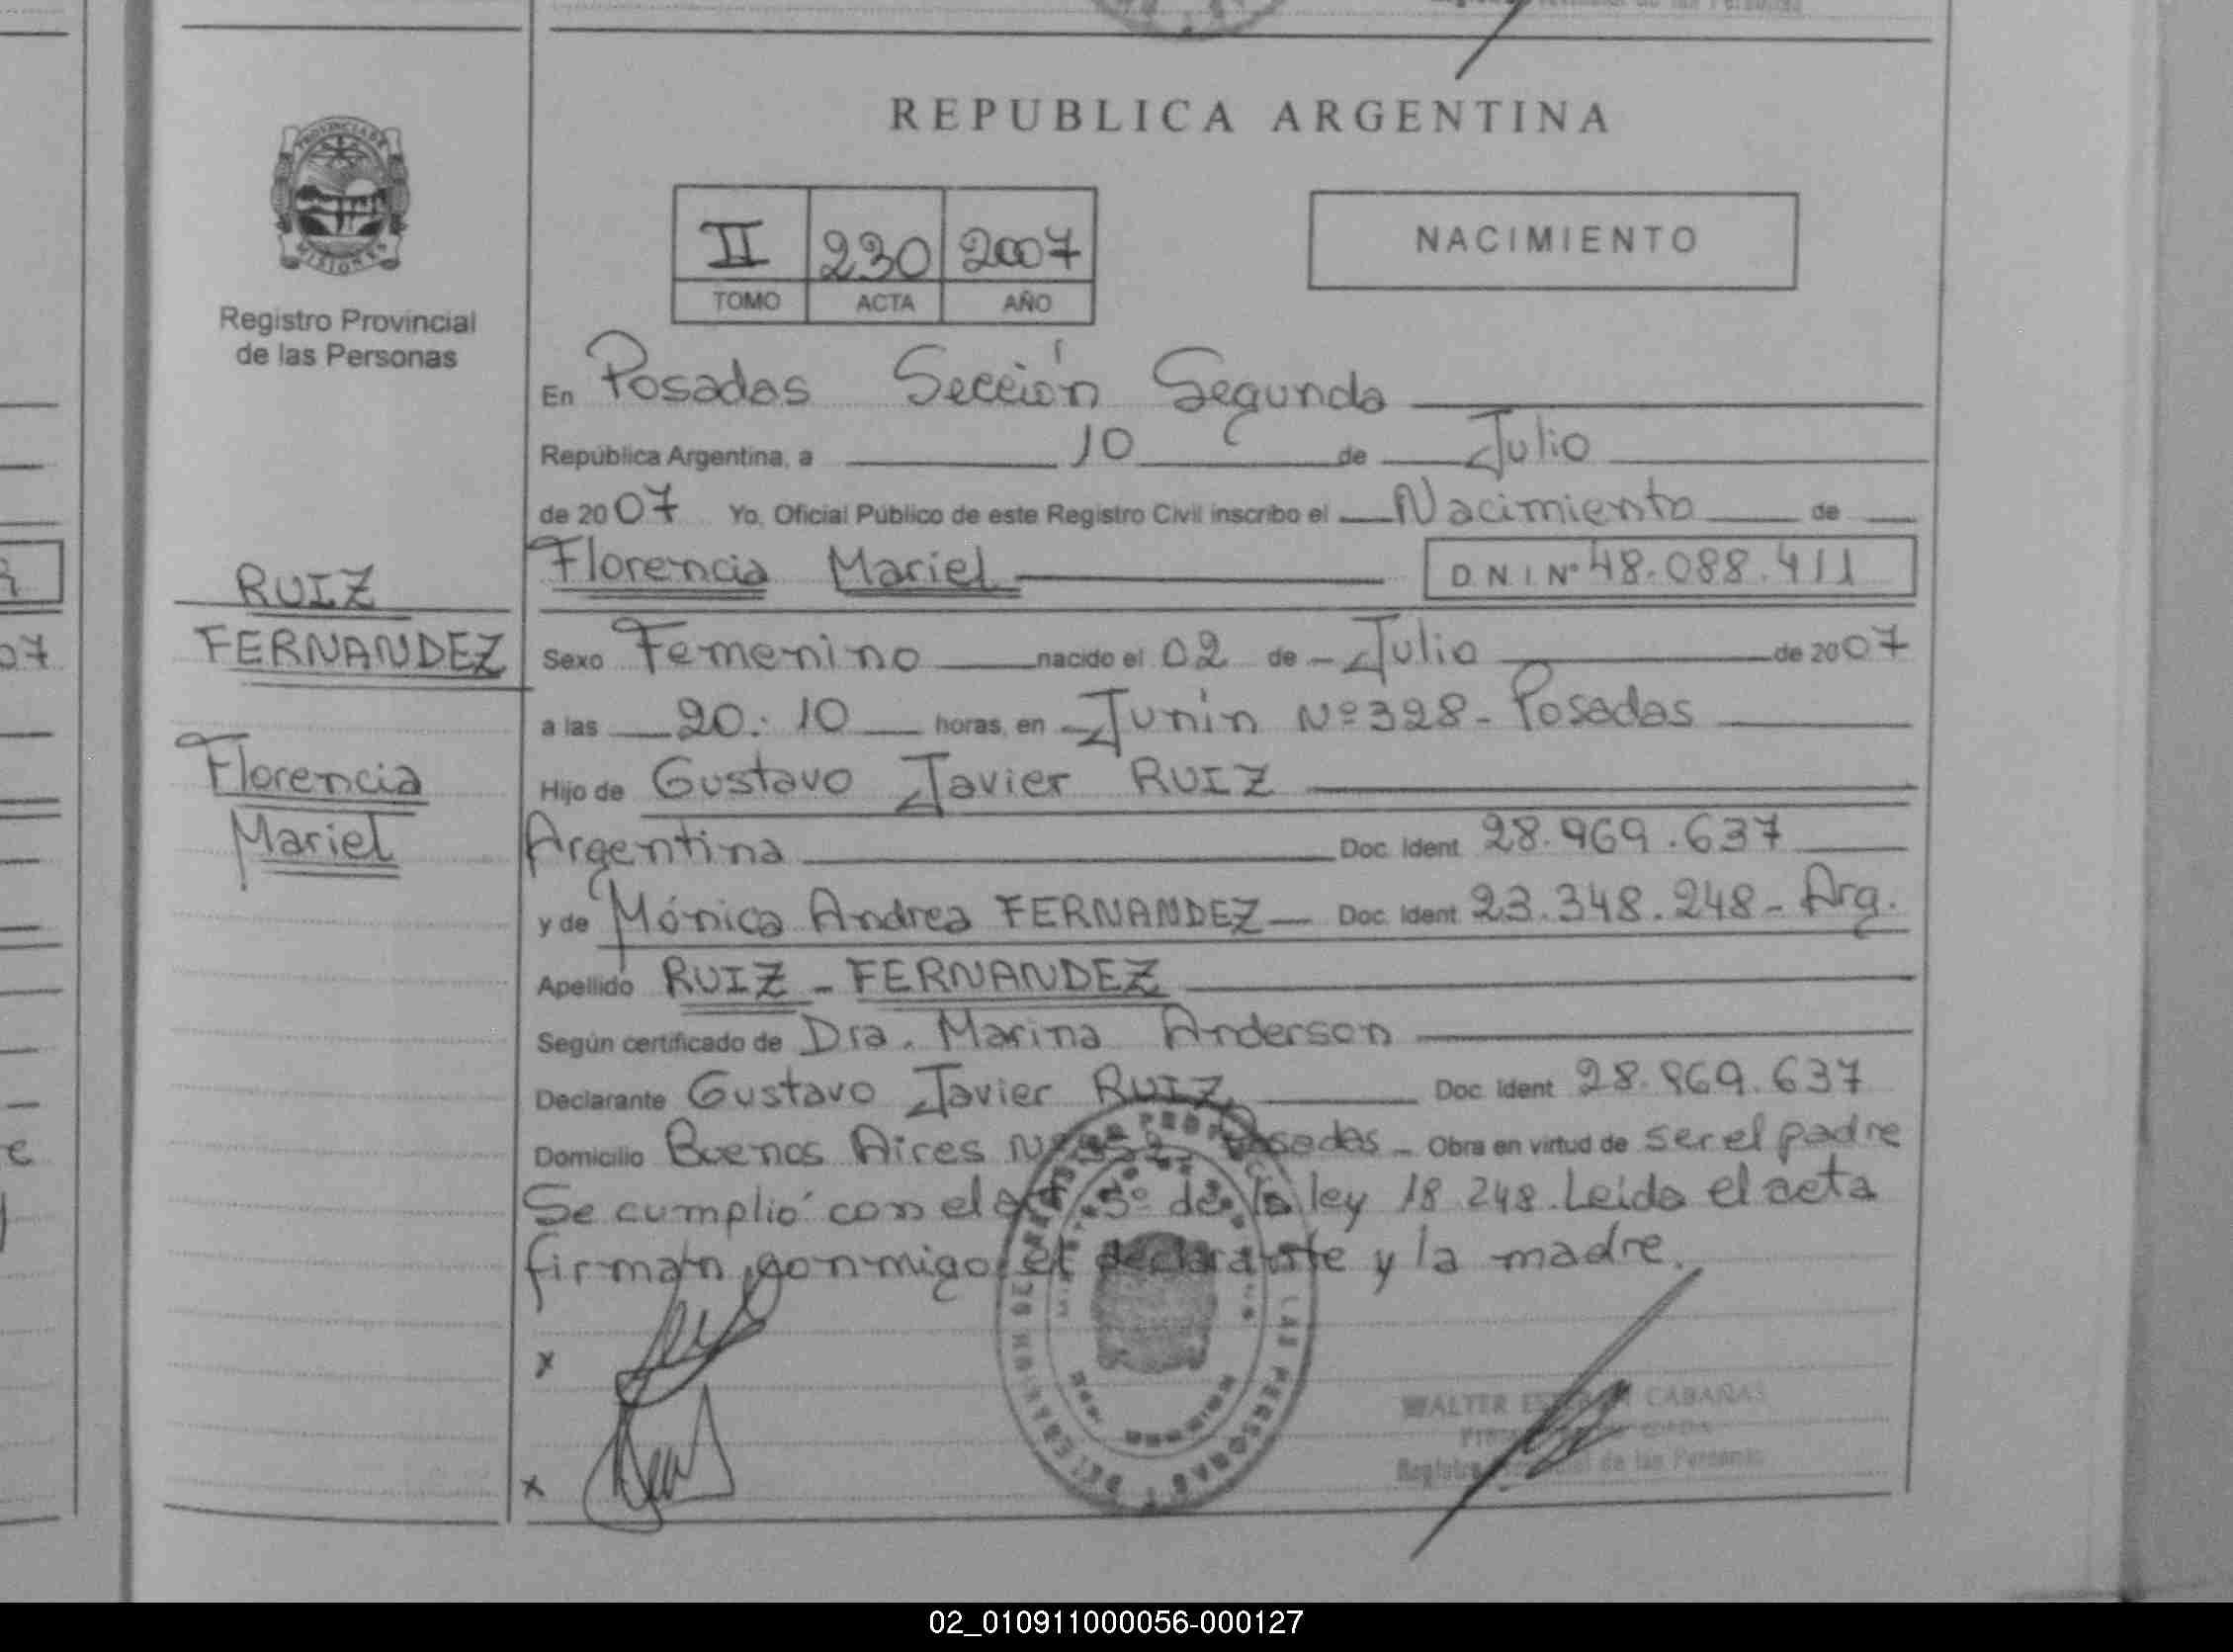 REPUBLICA ARGENTINA
PROVINCIA DE
MISIONES
Registro Provincial
de las Personas
II 230 2007
TOMO ACTA AÑO
NACIMIENTO
En Posadas Sección Segunda
República Argentina, a 10 de Julio
de 2007 Yo, Oficial Público de este Registro Civil inscribo el Nacimiento de
Florencia Mariel D.N.I. Nº 48.088.411
RUIZ
FERNANDEZ
Florencia
Mariel
Sexo Femenino nacido el 02 de Julio de 2007
a las 20:10 horas, en Junín Nº 328 - Posadas
Hijo de Gustavo Javier RUIZ
Argentina Doc. Ident 28.969.637
y de Mónica Andrea FERNANDEZ Doc. Ident 23.348.248 - Arg.
Apellido RUIZ - FERNANDEZ
Según certificado de Dra. Marina Anderson
Declarante Gustavo Javier RUIZ Doc. Ident 28.969.637
Domicilio Buenos Aires Posadas - Obra en virtud de ser el padre
Se cumplió con el art 5º de la ley 18.248. Leida el acta
firman conmigo el declarante y la madre.
x
x
WALTER CABAÑAS
Registro de las Personas
LAS PERSONAS
02_010911000056-000127